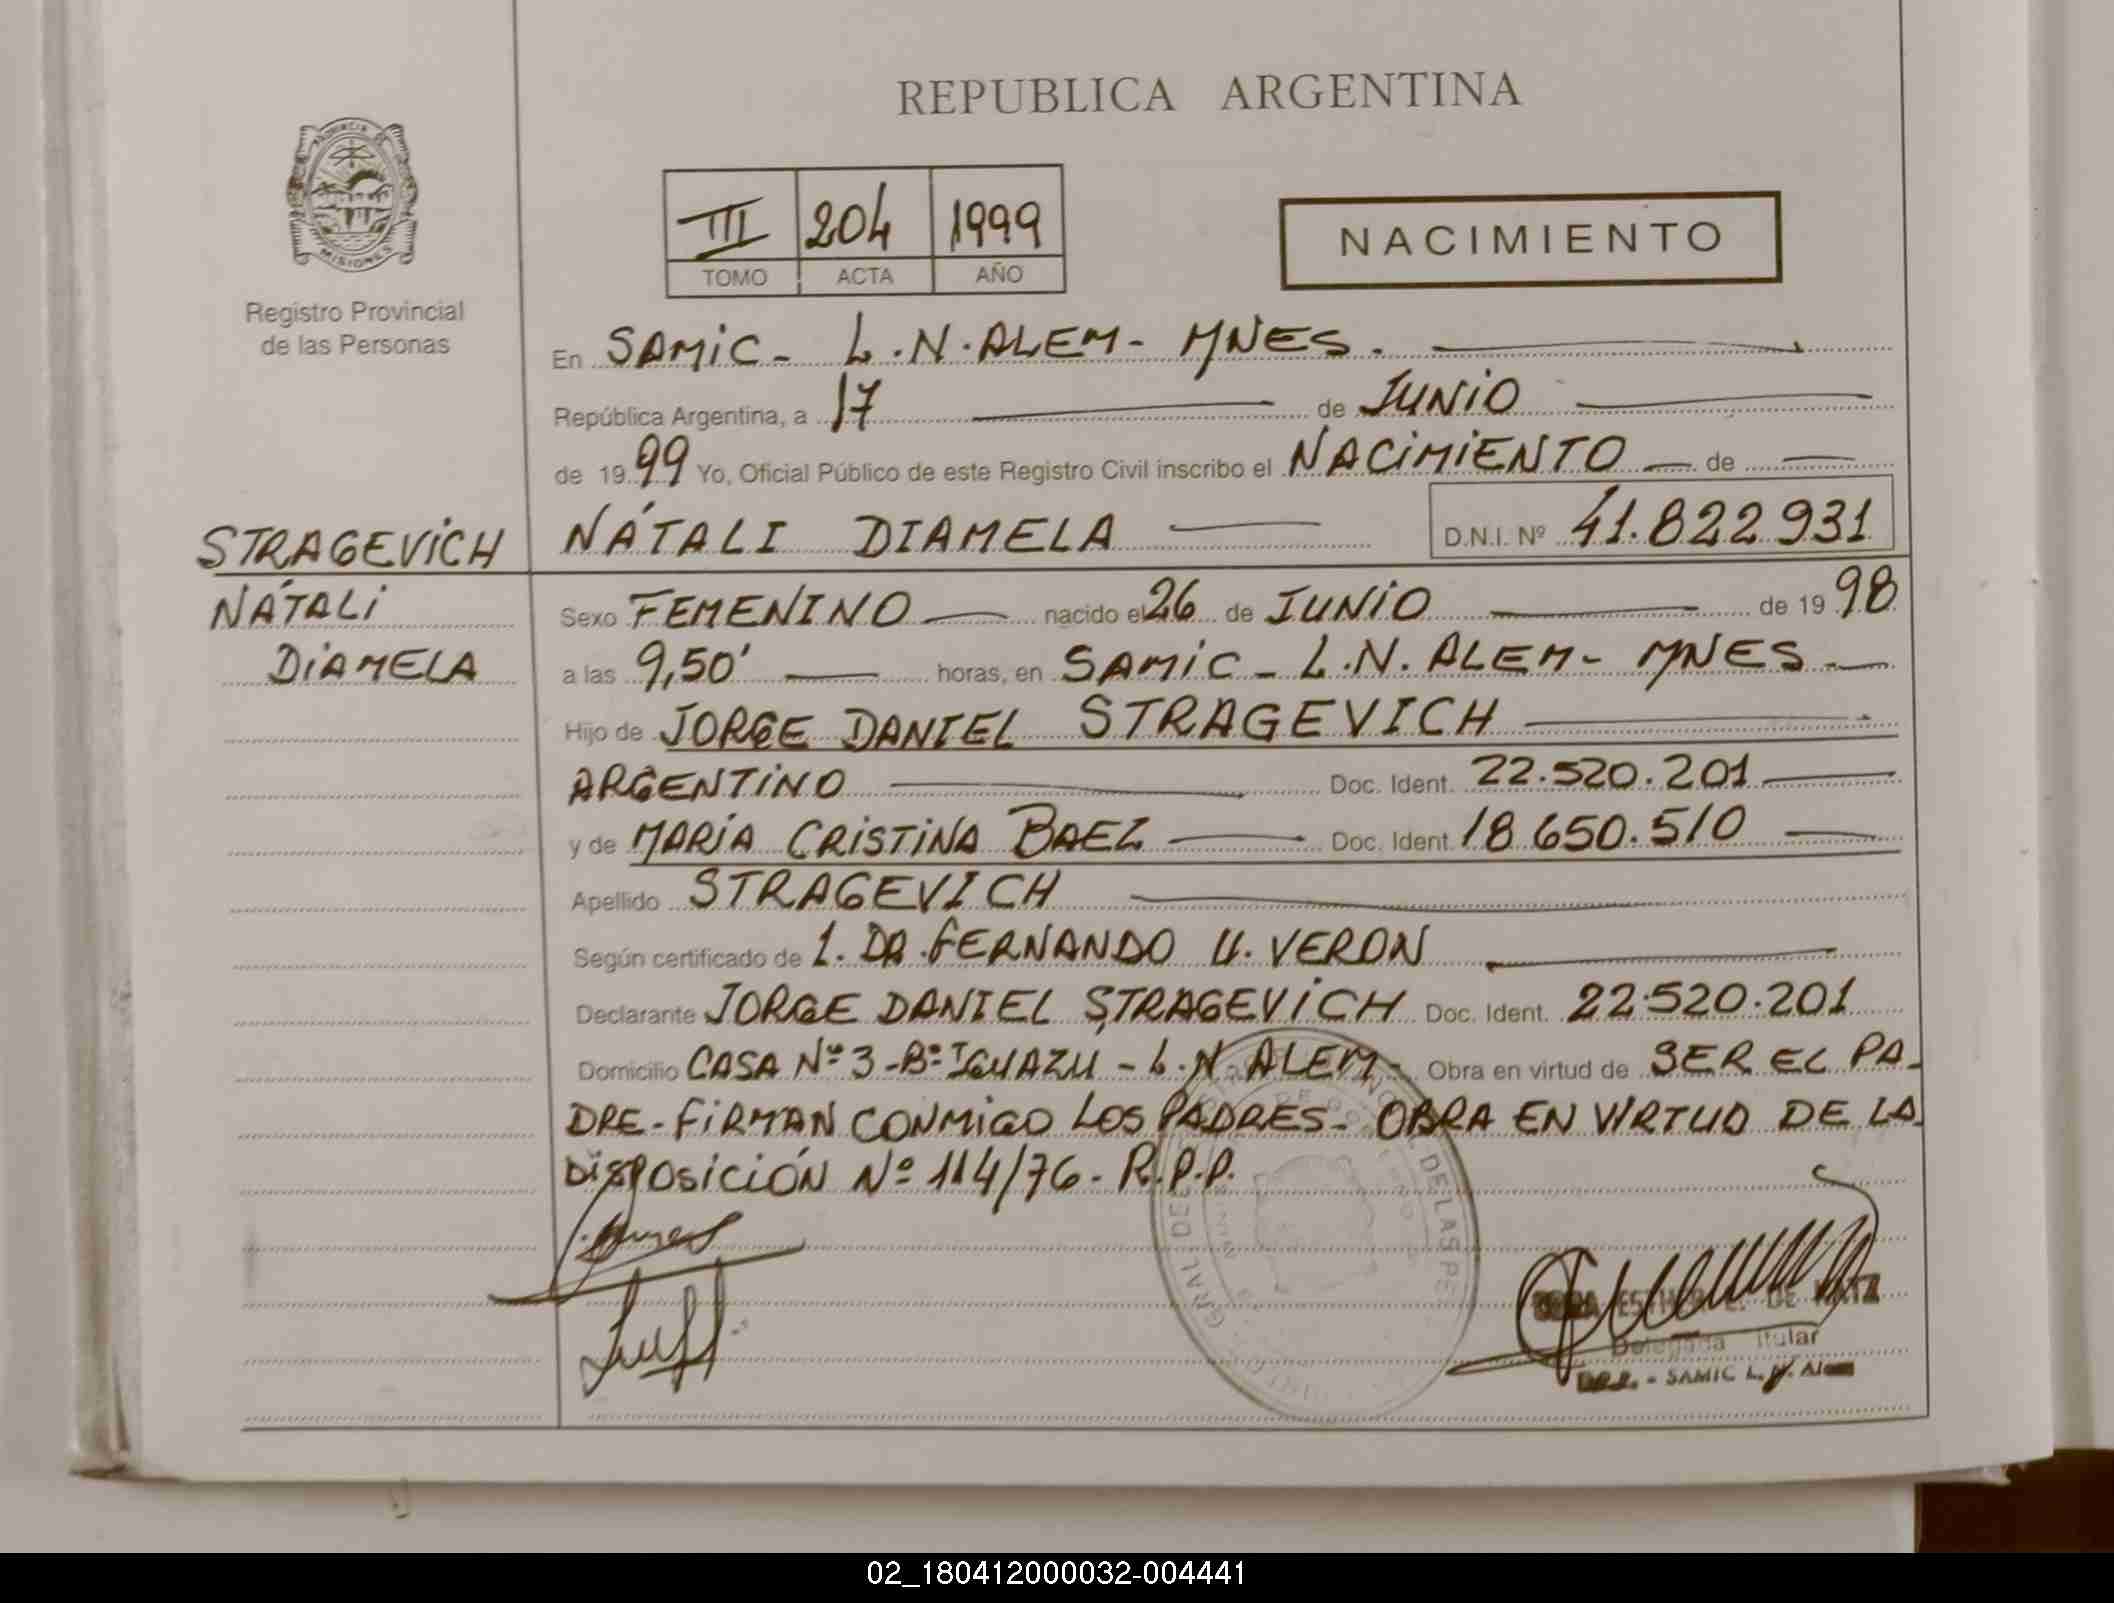 REPUBLICA ARGENTINA
PROVINCIA DE
MISIONES
Registro Provincial
de las Personas
III 204 1999
TOMO ACTA AÑO
NACIMIENTO
En SAMIC - L.N. ALEM - MNES.
República Argentina, a 17 de JUNIO
de 1999 Yo, Oficial Público de este Registro Civil inscribo el NACIMIENTO de
STRAGEVICH
NÁTALI
DIAMELA
NÁTALI DIAMELA D.N.I. Nº 41.822.931
Sexo FEMENINO nacido el 26 de JUNIO de 1998
a las 9,50' horas, en SAMIC - L.N. ALEM - MNES -
Hijo de JORGE DANIEL STRAGEVICH
ARGENTINO Doc. Ident. 22.520.201
y de MARÍA CRISTINA BAEZ Doc. Ident. 18.650.510
Apellido STRAGEVICH
Según certificado de 1. DR. FERNANDO U. VERON
Declarante JORGE DANIEL STRAGEVICH Doc. Ident. 22.520.201
Domicilio CASA Nº 3 - Bº IGUAZU - L.N. ALEM - Obra en virtud de SER EL PA-
DRE - FIRMAN CONMIGO LOS PADRES - OBRA EN VIRTUD DE LA
DISPOSICIÓN Nº 114/76 - R.P.P.
DE
Delegada Titular
R.P.P. - SAMIC L.N. Alem
02_180412000032-004441